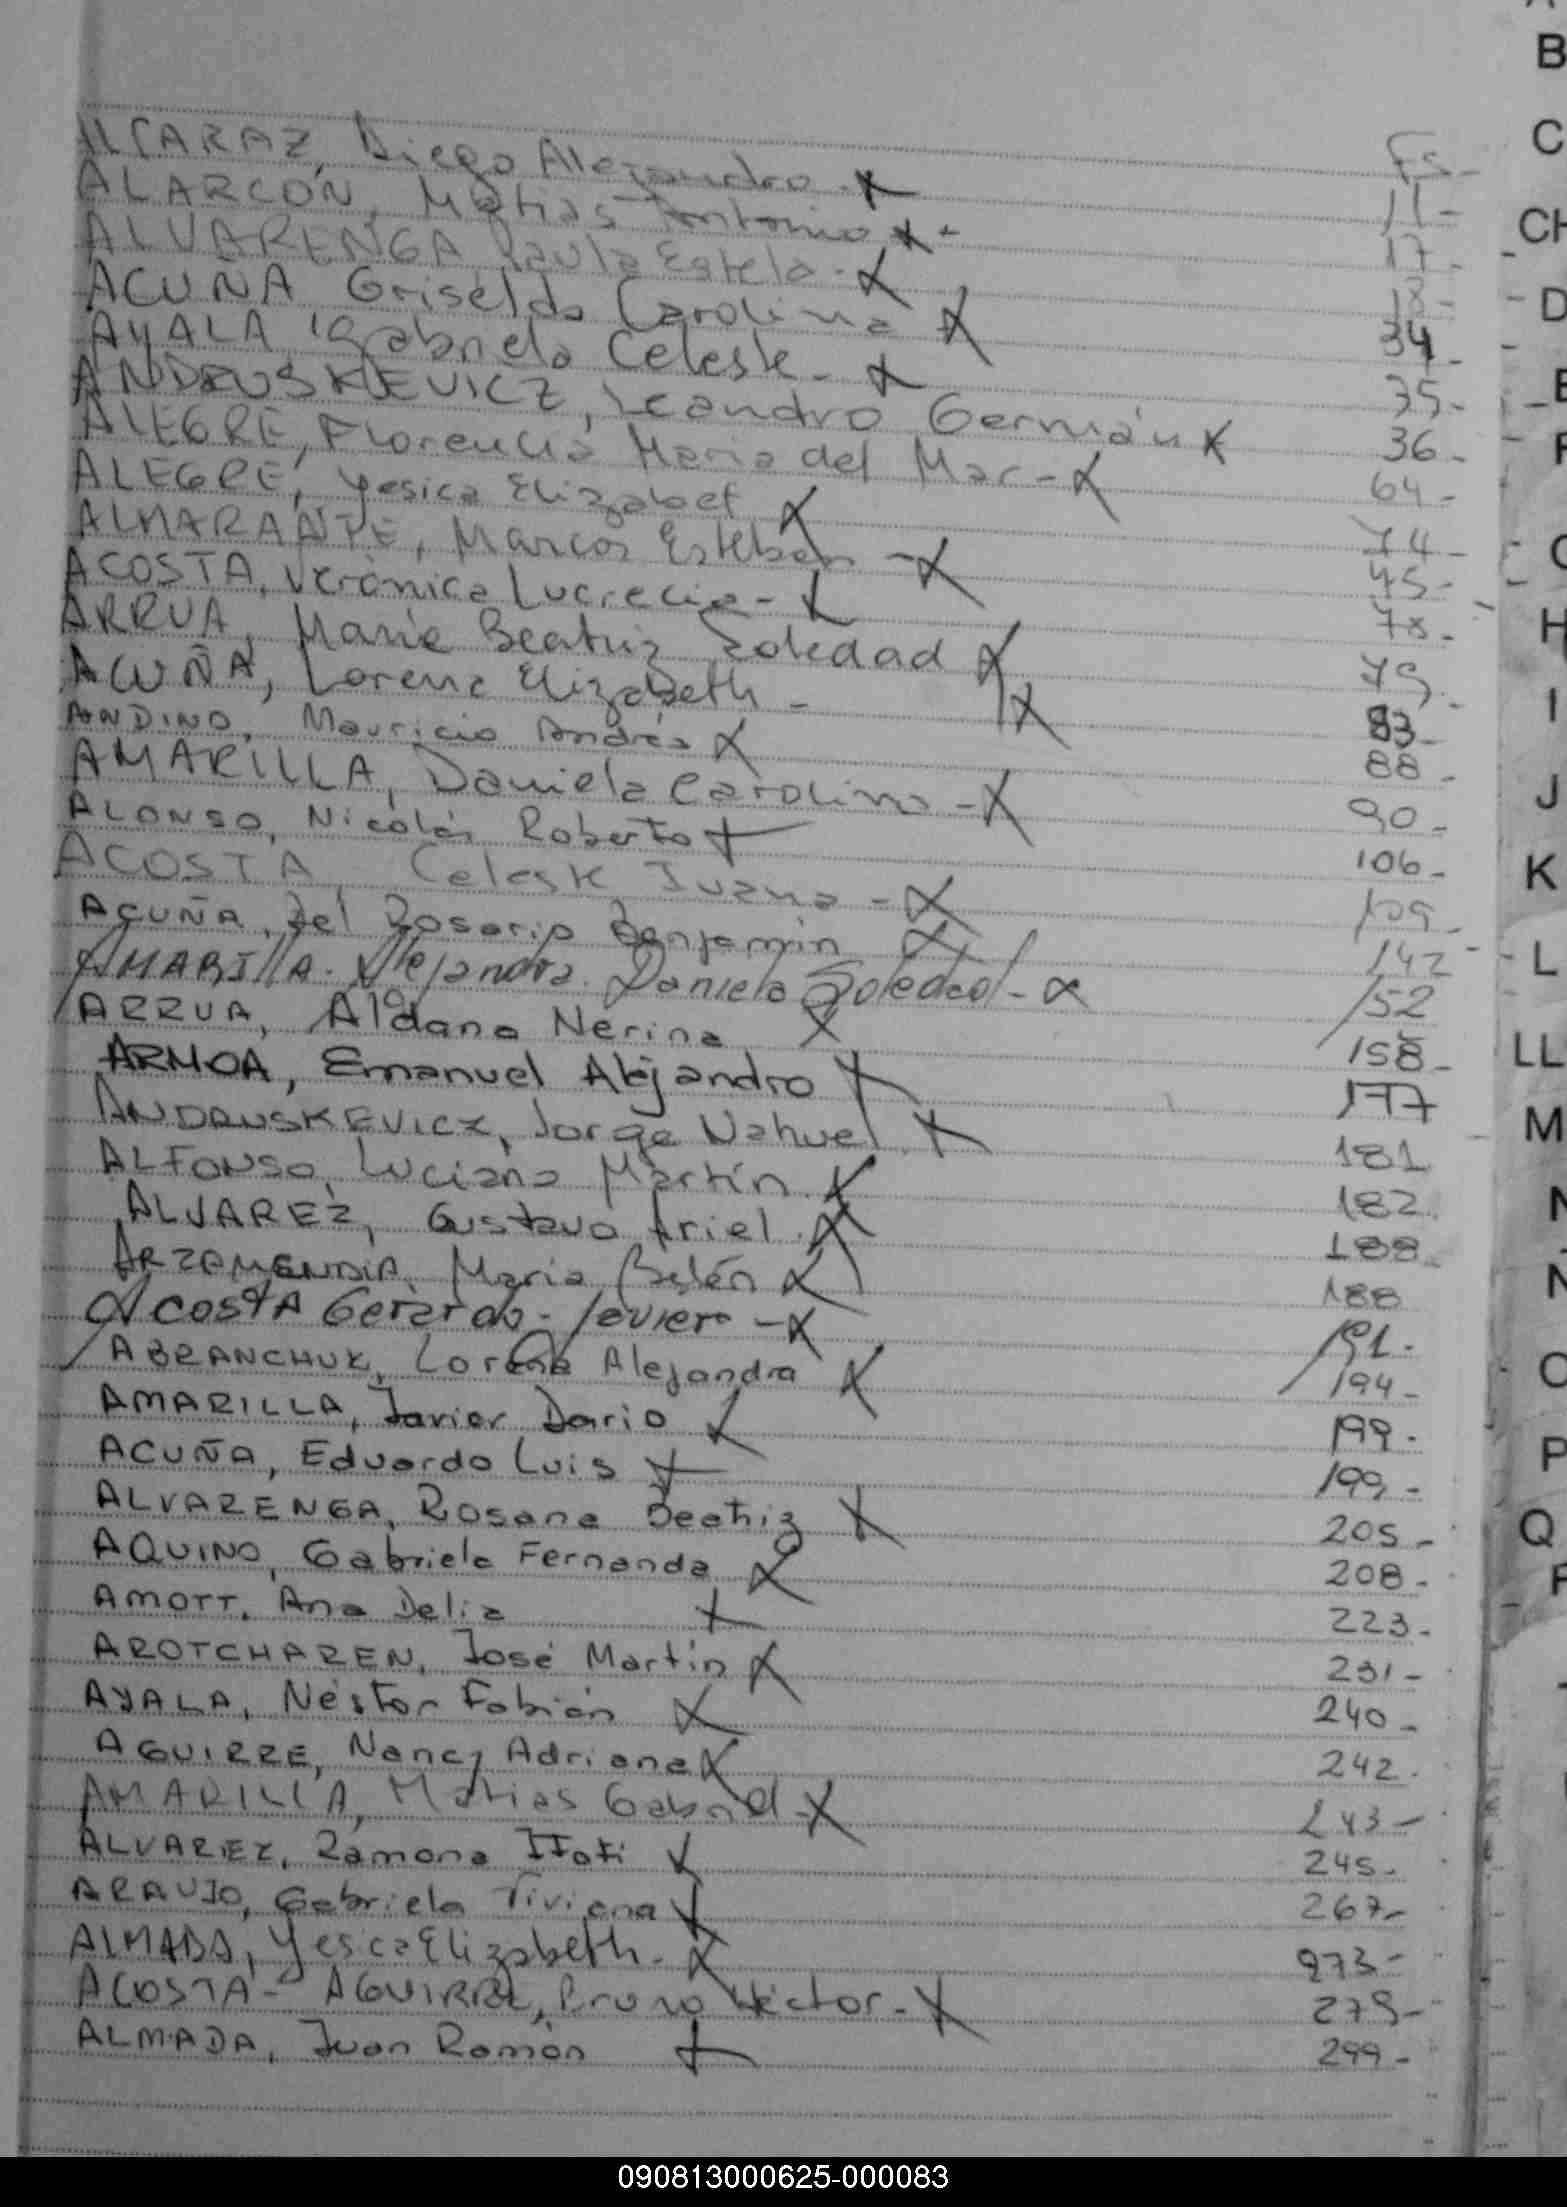 Fs-
ALCARAZ, Diego Alejandro - x 11-
ALARCÓN, Matias Antonio x - 17-
ALVARENGA Paula Estela - x 18-
ACUÑA Griselda Carolina x 34
AYALA Gabriela Celeste - x 35-
ANDRUSKEVICZ, Leandro Germán x 36-
ALEGRE, Florencia Maria del Mar - x 64-
ALEGRE, Yesica Elizabet x 74-
ALMARANTE, Marcos Esteban - x 75-
ACOSTA, Verónica Lucrecia - x 78-
ARRUA, Maria Beatriz Soledad x 79-
ACUÑA, Lorena Elizabeth - x 83-
ANDINO, Mauricio Andrés x 88-
AMARILLA, Daniela Carolina - x 90-
ALONSO, Nicolás Roberto x 106-
ACOSTA, Celeste Juana - x 109-
ACUÑA, Del Rosario Benjamin x 142-
AMARILLA. Alejandra. Daniela Soledad - x 152
ARRUA, Aldana Nerina x 158-
ARMOA, Emanuel Alejandro x 177
ANDRUSKEVICZ, Jorge Nahuel. x 181
ALFONSO, Luciano Martín. x 182
ALVAREZ, Gustavo Ariel. x 188
ARZAMENDIA, María Belén x 188
ACOSTA Gerardo - Javier - x 191-
ABRANCHUK, Lorena Alejandra x 194-
AMARILLA, Javier Dario x 199-
ACUÑA, Eduardo Luis x 199-
ALVARENGA, Rosana Beatriz x 205-
AQUINO, Gabriela Fernanda x 208-
AMOTT, Ana Delia x 223-
AROTCHAREN, José Martín x 231-
AYALA, Néstor Fabián x 240-
AGUIRRE, Nancy Adriana x 242-
AMARILLA, Matias Gabriel - x 243-
ALVAREZ, Ramona Itati x 245-
ARAUJO, Gabriela Viviana x 267-
ALMADA, Yesica Elizabeth - x 273-
ACOSTA - AGUIRRE, Bruno Héctor - x 279-
ALMADA, Juan Ramón x 299-
B
C
CH
D
H
I
J
K
L
LL
M
P
Q
090813000625-000083